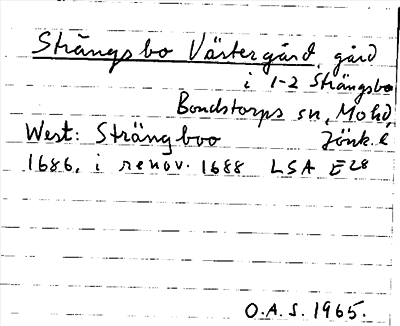 Strängsbo Västergård, gård
i 1-2 Strängsbo
Bondstorps sn, Mo hd,
West: Strängboo Jönk. l
1686, i renov. 1688 LSA E28
O.A.S. 1965.